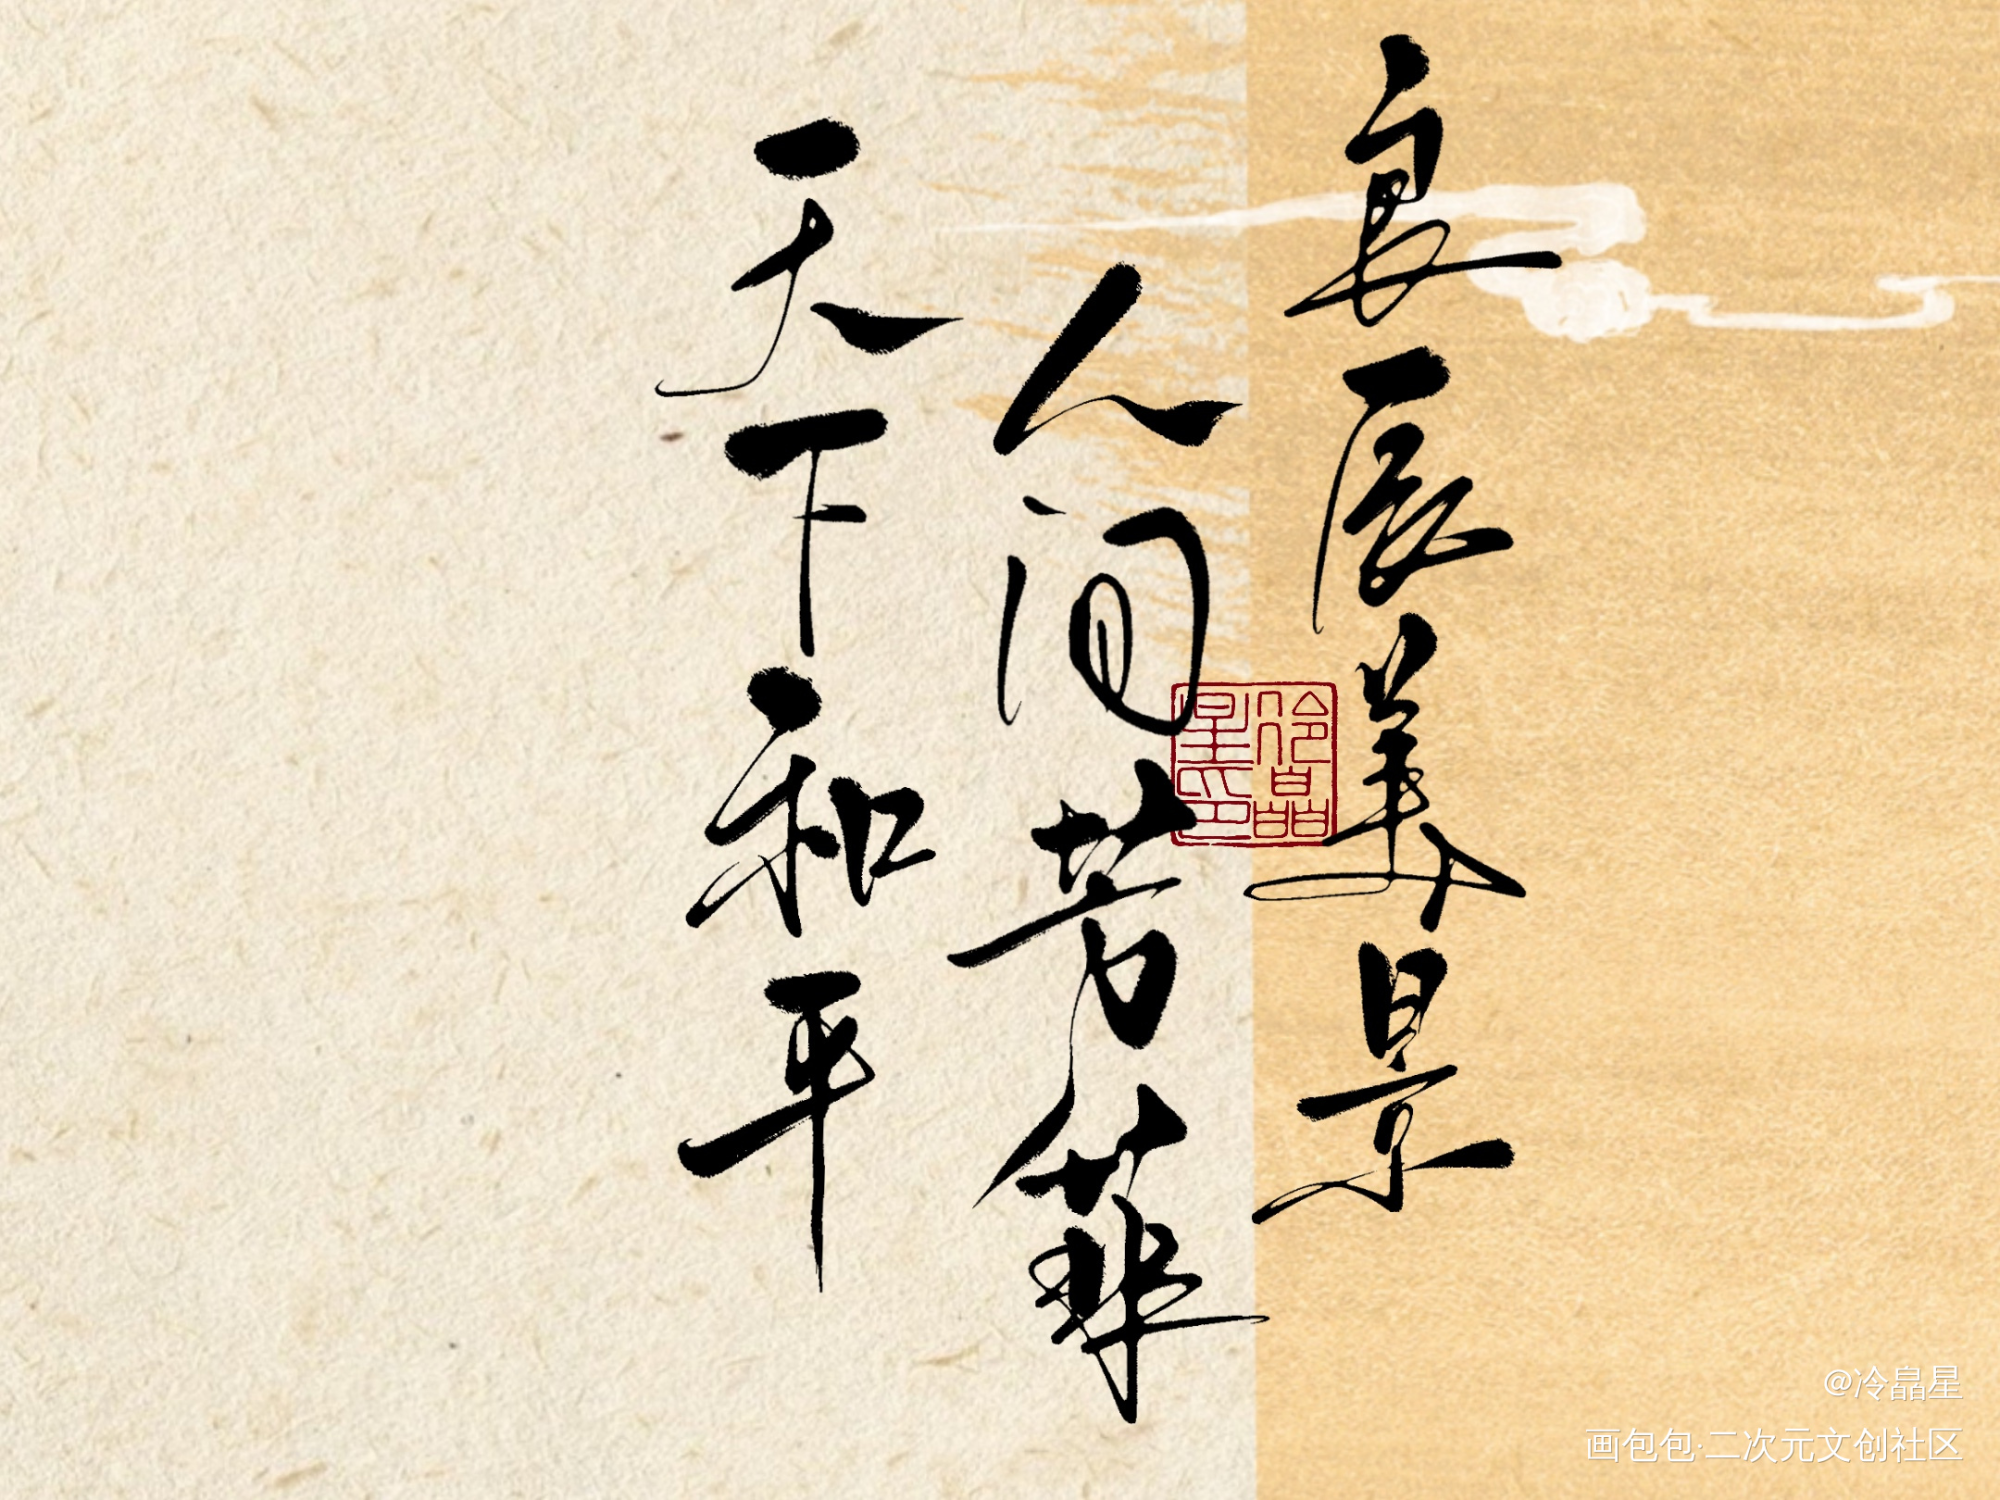 良辰美景
人间芳菲
天下和平
冷皛星印
@冷皛星
画包包·二次元文创社区